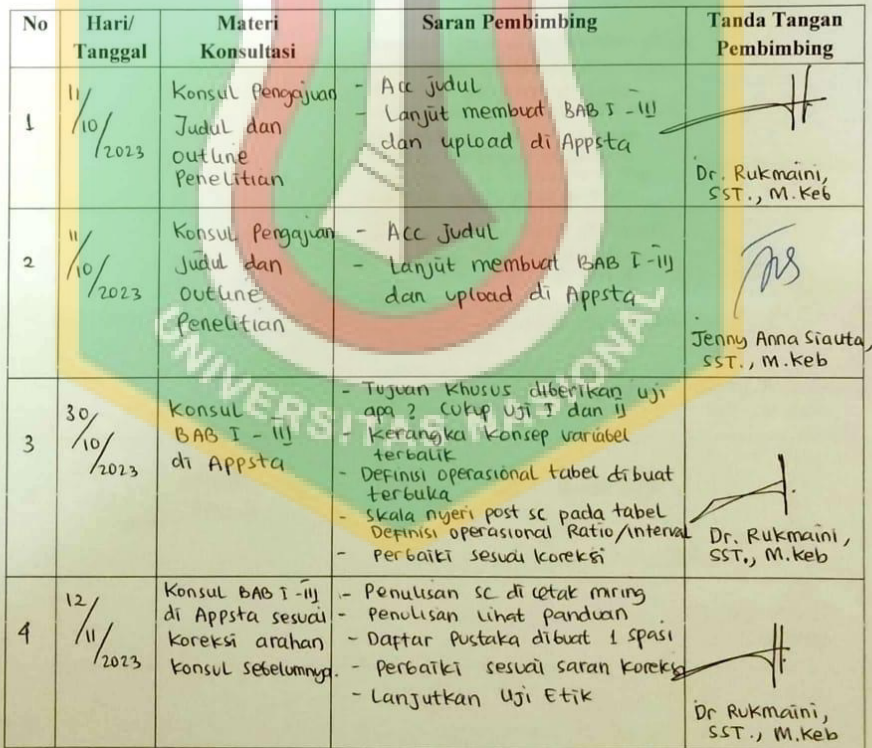 No
Hari/
Tanggal
Materi
Konsultasi
Saran Pembimbing
Tanda Tangan
Pembimbing
1
11/10/2023
Konsul Pengajuan
Judul dan
outline
Penelitian
- Acc judul
- Lanjut membuat BAB I - III
dan upload di Appsta
Dr. Rukmaini,
SST., M.Keb
2
11/10/2023
Konsul Pengajuan
Judul dan
Outline
Penelitian
- Acc Judul
- Lanjut membuat BAB I - III
dan upload di Appsta
Jenny Anna Siauta,
SST., M.Keb
3
30/10/2023
Konsul
BAB I - III
di Appsta
- Tujuan khusus diberikan uji
apa? Cukup Uji I dan II
- Kerangka Konsep variabel
terbalik
- Definisi operasional tabel dibuat
terbuka
- Skala nyeri post sc pada tabel
Definisi operasional Ratio/interval
- Perbaiki sesuai koreksi
Dr. Rukmaini,
SST., M.Keb
4
12/11/2023
Konsul BAB I - III
di Appsta sesuai
koreksi arahan
konsul sebelumnya.
- Penulisan sc di cetak mring
- Penulisan Lihat panduan
- Daftar Pustaka dibuat 1 spasi
- Perbaiki sesuai saran koreksi
- Lanjutkan Uji Etik
Dr Rukmaini,
SST., M.Keb
UNIVERSITAS NASIONAL